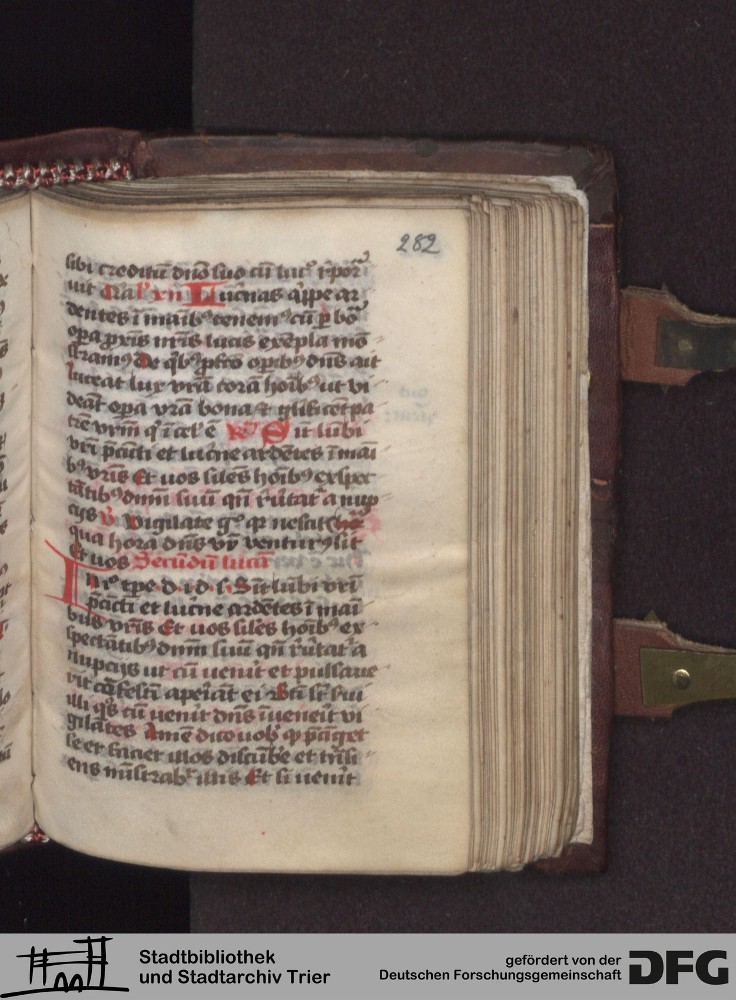 282
sibi creditū dn̄o suo cū luc᷒ rͥpor
uit Lucnas aūtē ar
dentes ī maibꝰ tenemꝰ cū ꝑ bōa
opa ꝓxis nr̄is lucis exēpla mōs
tramꝰ De qͥbꝰ opibꝰ dn̄s ait
luceat lux vr̄a corā hoībꝰ ut vi
deāt opa vr̄a bona ⁊ glificēt pa
trē vrm̄ qͥ ī cel ē Sīt lūbi
vrī p̄cīcti et lucrne ardētes ī mai
bꝰ vr̄is Et uos siles hoībꝰ exspec
tātibꝰ dnm̄ suū qn̄ rͥutat᷒ a nup
cijs v Vigilate gͦ qꝛ nescit
qua hora dn̄s vr̄ venturꝰ sit
Et uos Secūdū lucā
In ͦ tꝑe d i d s Sīt lūbi vrī
p̄cīcti et lucrne ardētes ī mai
bus vr̄is Et uos siles hoībꝰ ex
spectātibꝰ dnm̄ suū qn̄ rͥutat᷒ a
nupcijs ut cū uenit et pulsaue
rit cōfestī aperiāt ei Bti sͭ sͬui
illi qͦs cū uenit dn̄s īuenerit vi
gilātes Amē dico uobꝰ qͥ p̄cīget
se et faciet illos discūbe et trāsi
ens mīstrab᷒ illis Et si uen̄it
Stadtbibliothek
und Stadtarchiv Trier
gefördert von der
Deutschen Forschungsgemeinschaft
DFG